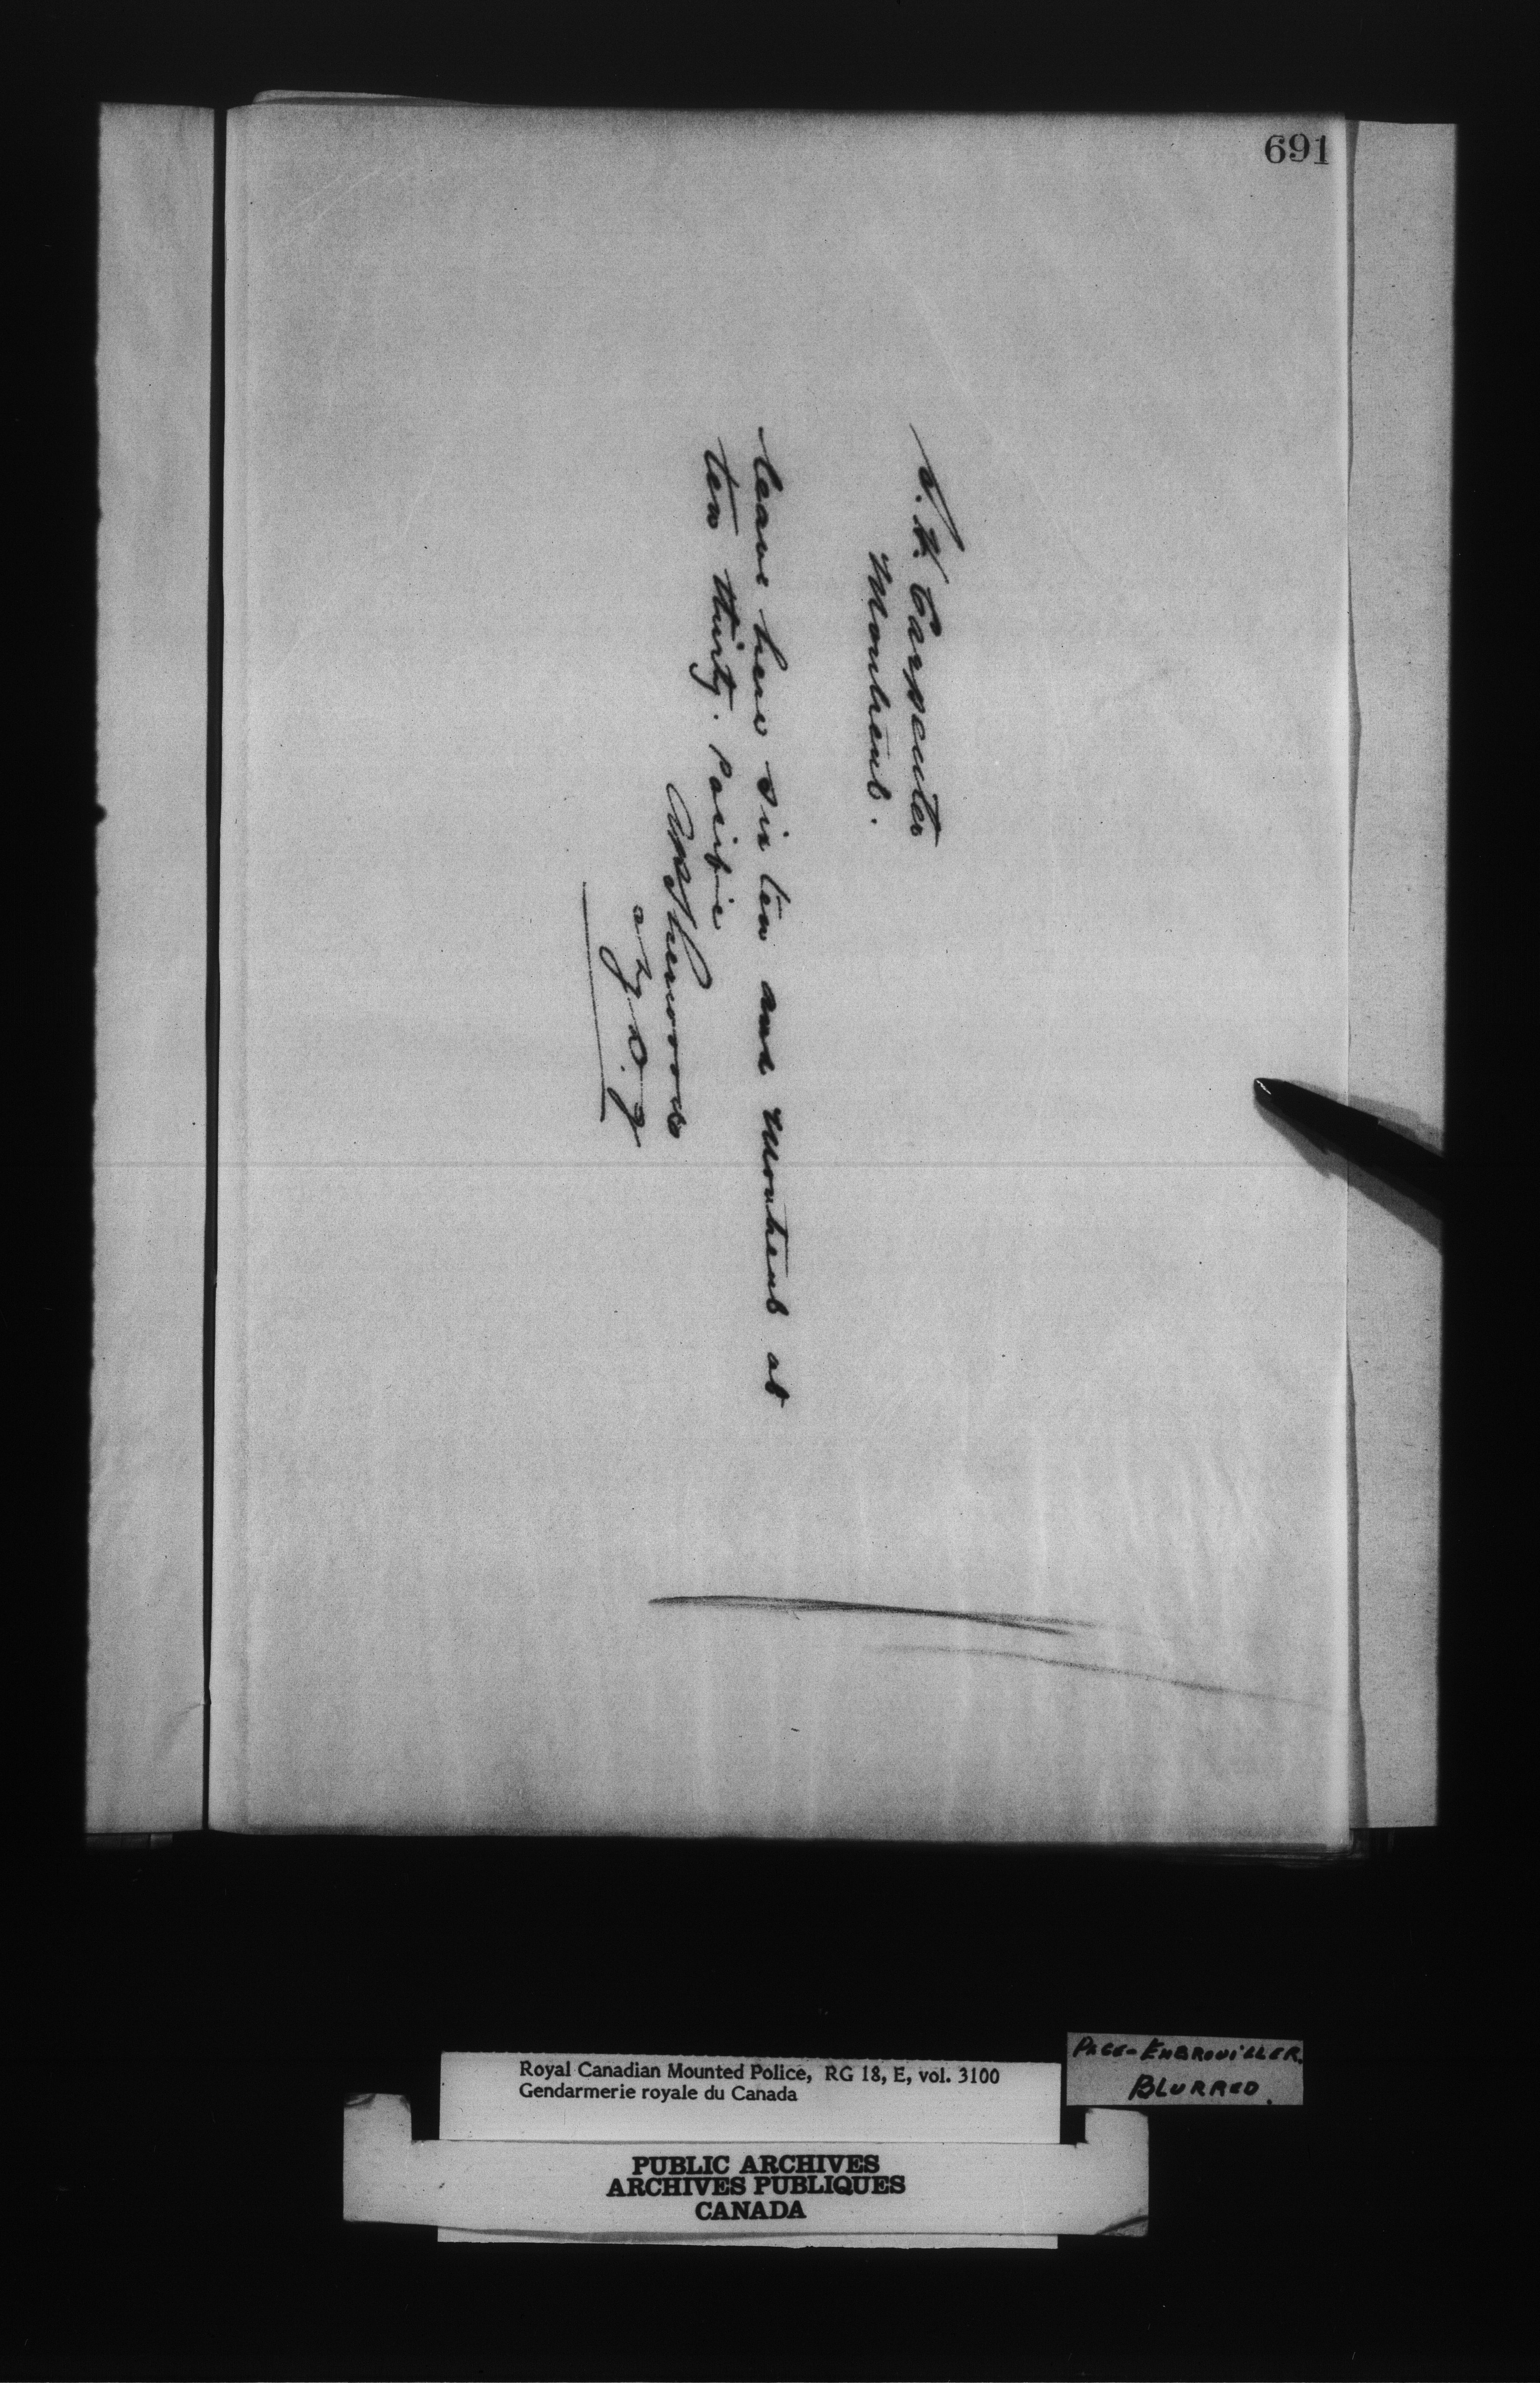 691
S. H. Carpenter
Montreal.
leave here six ten and Montreal at
ten thirty. Pacific
A P Sherwood
a/g D. J
Royal Canadian Mounted Police, RG 18, E, vol. 3100
Gendarmerie royale du Canada
PAGE-EMBROUILLER.
BLURRED.
PUBLIC ARCHIVES
ARCHIVES PUBLIQUES
CANADA